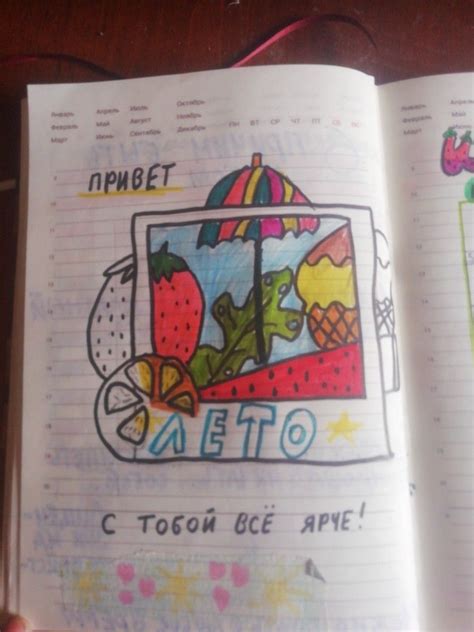 Январь Апрель Июль Октябрь
Февраль Май Август Ноябрь
Март Июнь Сентябрь Декабрь ПН ВТ СР ЧТ ПТ СБ ВС
ПРИВЕТ
ЛЕТО
С ТОБОЙ ВСЁ ЯРЧЕ!
Январь Апрель
Февраль Май
Март Июнь